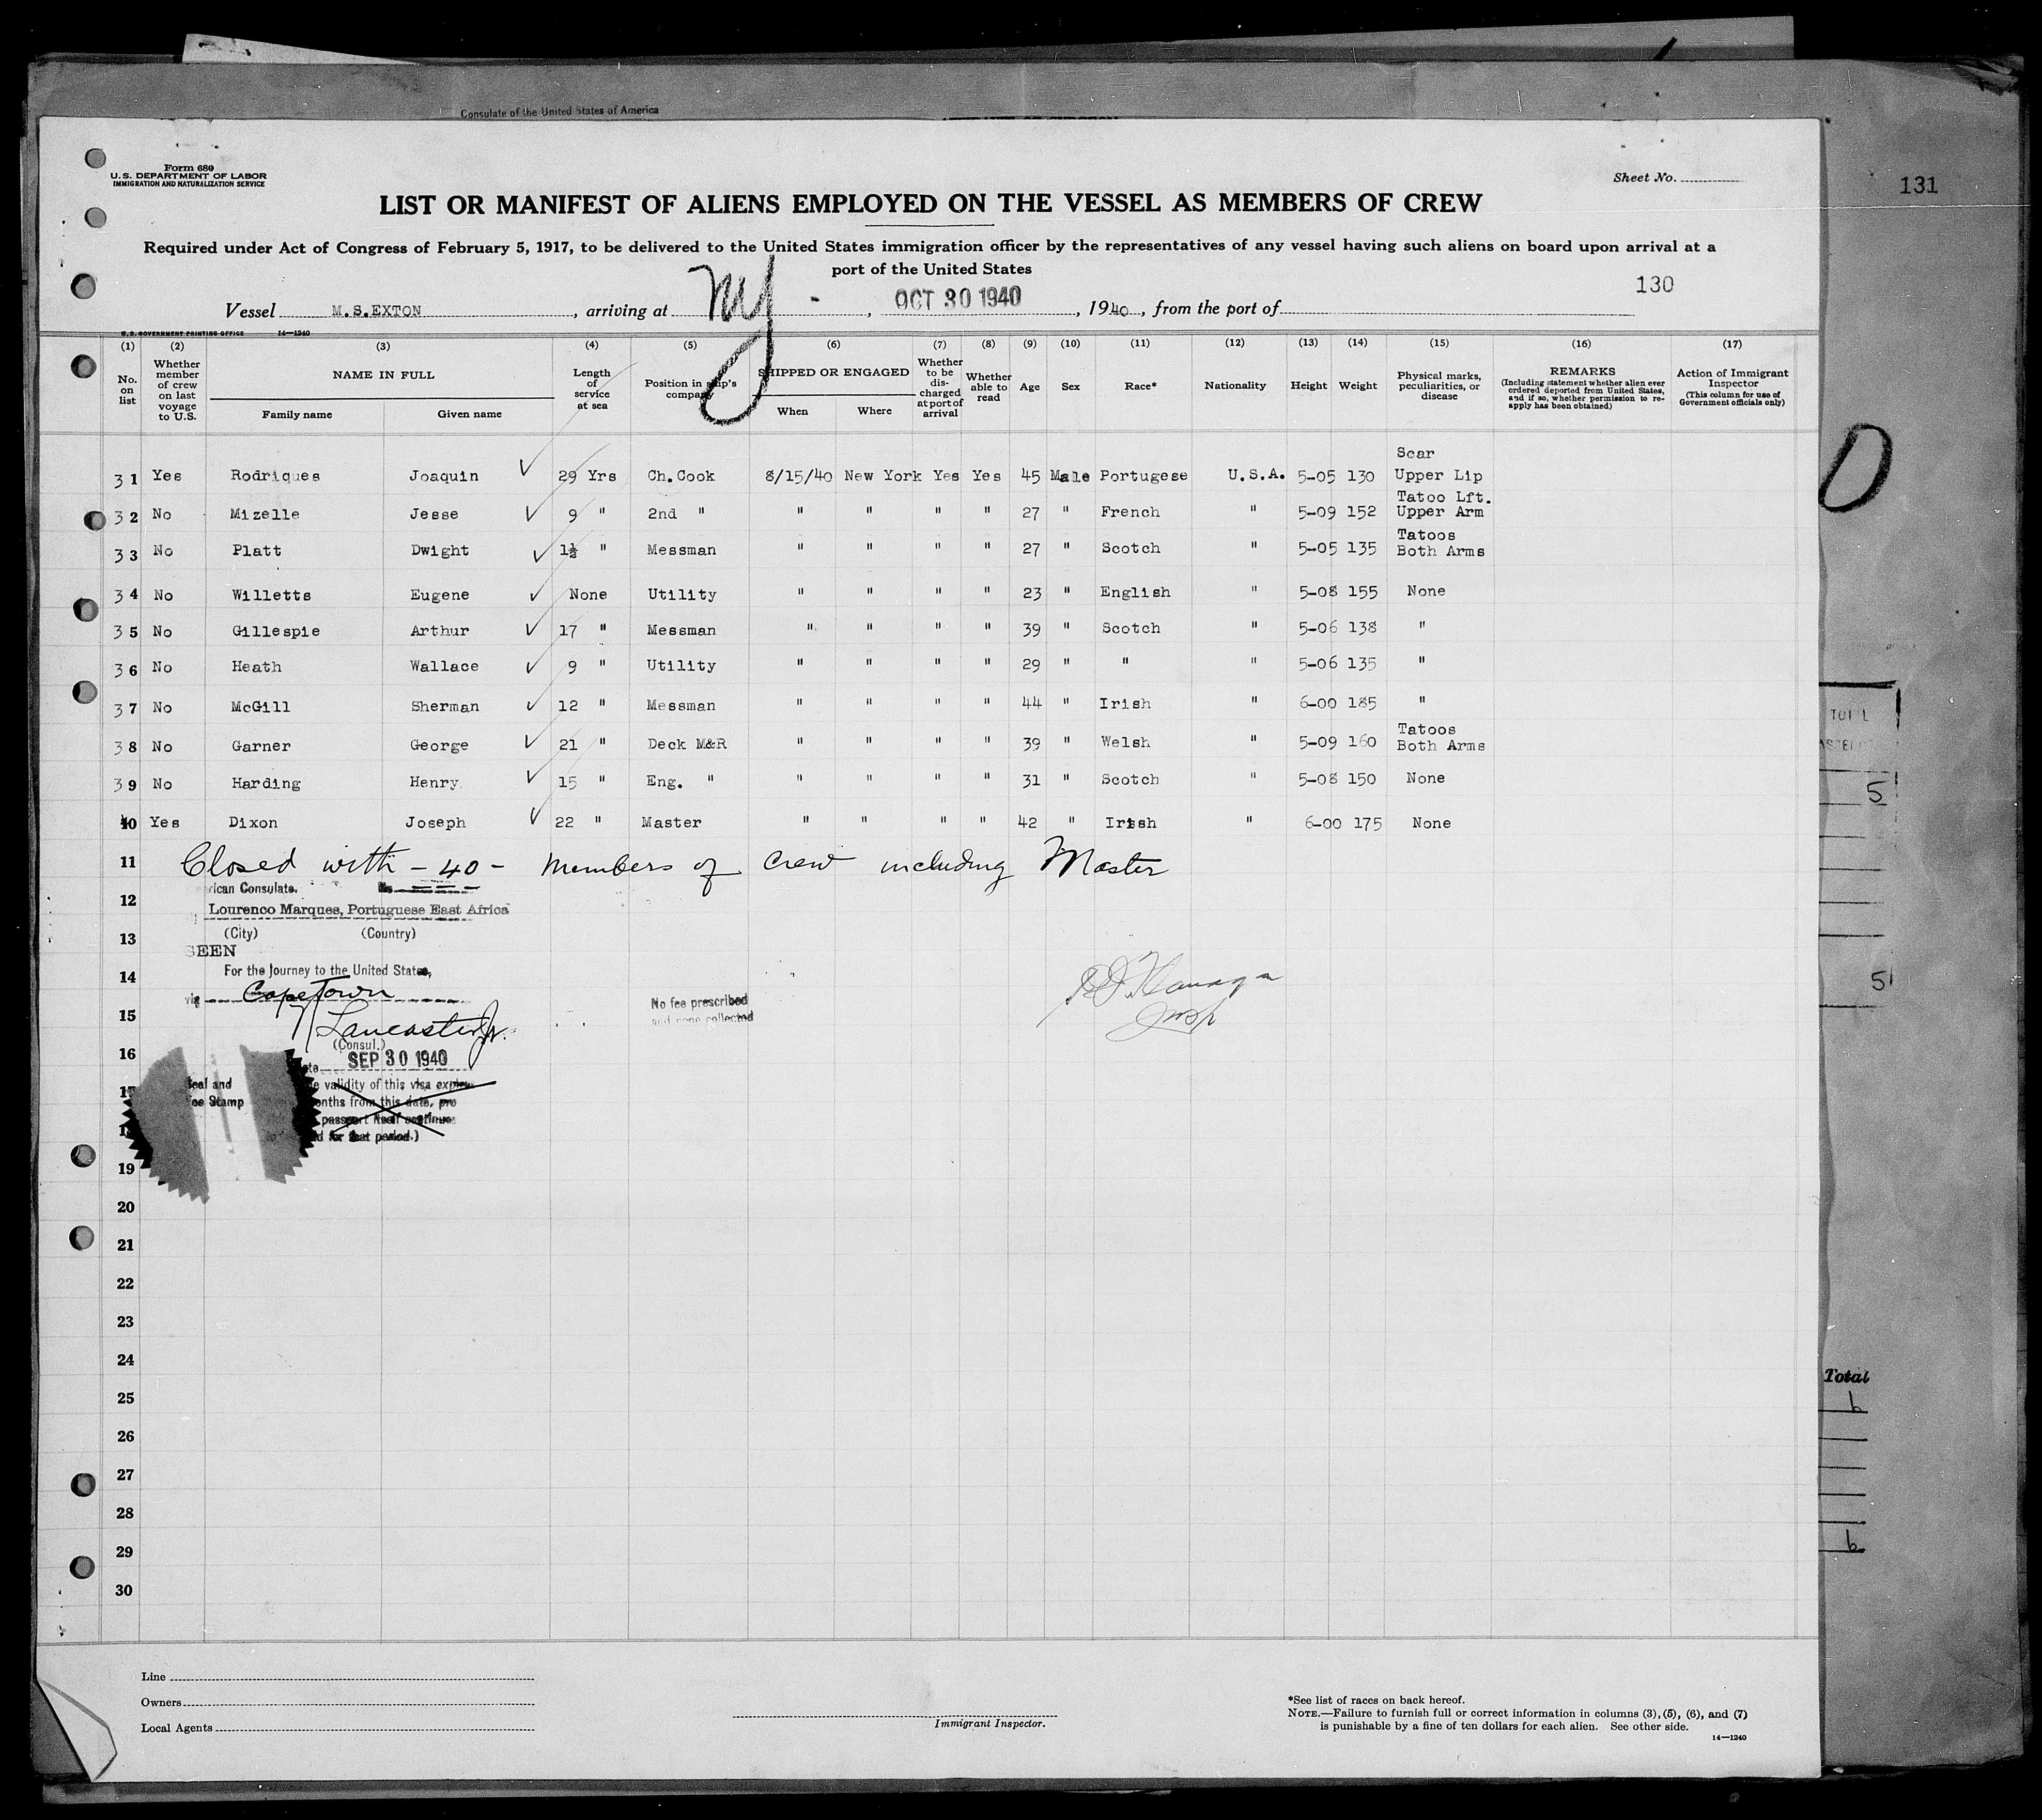 Consulate of the United States of America
131
Form 680
U.S. DEPARTMENT OF LABOR
IMMIGRATION AND NATURALIZATION SERVICE
Sheet No.
LIST OR MANIFEST OF ALIENS EMPLOYED ON THE VESSEL AS MEMBERS OF CREW
Required under Act of Congress of February 5, 1917, to be delivered to the United States immigration officer by the representatives of any vessel having such aliens on board upon arrival at a
port of the United States
130
Vessel M.S.EXTON, arriving at NY - , OCT 30 1940, 1940, from the port of
U.S. GOVERNMENT PRINTING OFFICE 14—1240
(1) (2) (3) (4) (5) (6) (7) (8) (9) (10) (11) (12) (13) (14) (15) (16) (17)
No. on list
Whether member of crew on last voyage to U.S.
NAME IN FULL
Family name Given name
Length of service at sea
Position in ship's company
SHIPPED OR ENGAGED
When Where
Whether to be discharged at port of arrival
Whether able to read
Age
Sex
Race*
Nationality
Height
Weight
Physical marks, peculiarities, or disease
REMARKS
(Including statement whether alien ever ordered deported from United States, and if so, whether permission to reapply has been obtained)
Action of Immigrant Inspector
(This column for use of Government officials only)
31 Yes Rodriques Joaquin ✓ 29 Yrs Ch.Cook 8/15/40 New York Yes Yes 45 Male Portugese U.S.A. 5-05 130 Scar Upper Lip
32 No Mizelle Jesse ✓ 9 " 2nd " " " " " 27 " French " 5-09 152 Tatoo Lft. Upper Arm
33 No Platt Dwight ✓ 1½ " Messman " " " " 27 " Scotch " 5-05 135 Tatoos Both Arms
34 No Willetts Eugene ✓ None Utility " " " " 23 " English " 5-08 155 None
35 No Gillespie Arthur ✓ 17 " Messman " " " " 39 " Scotch " 5-06 138 "
36 No Heath Wallace ✓ 9 " Utility " " " " 29 " " " 5-06 135 "
37 No McGill Sherman ✓ 12 " Messman " " " " 44 " Irish " 6-00 185 "
38 No Garner George ✓ 21 " Deck M&R " " " " 39 " Welsh " 5-09 160 Tatoos Both Arms
39 No Harding Henry ✓ 15 " Eng. " " " " " 31 " Scotch " 5-08 150 None
40 Yes Dixon Joseph ✓ 22 " Master " " " " 42 " Irish " 6-00 175 None
11 Closed with - 40 - members of crew including Master
rican Consulate. No.
12
Lourenco Marques, Portuguese East Africa
(City) (Country)
13
SEEN
For the Journey to the United States,
14
via Cape Town
No fee prescribed
and none collected
15
Lancaster Jr.
(Consul.)
16
SEP 30 1940
Seal and
Fee Stamp
e validity of this visa expires
onths from this date, pro
passport itself continue
d for that period.)
Flanagan
Insp
19
20
21
22
23
24
25
26
27
28
29
30
Total
6
6
5
5
Line
Owners
Local Agents
Immigrant Inspector.
*See list of races on back hereof.
NOTE.—Failure to furnish full or correct information in columns (3), (5), (6), and (7)
is punishable by a fine of ten dollars for each alien. See other side.
14—1240